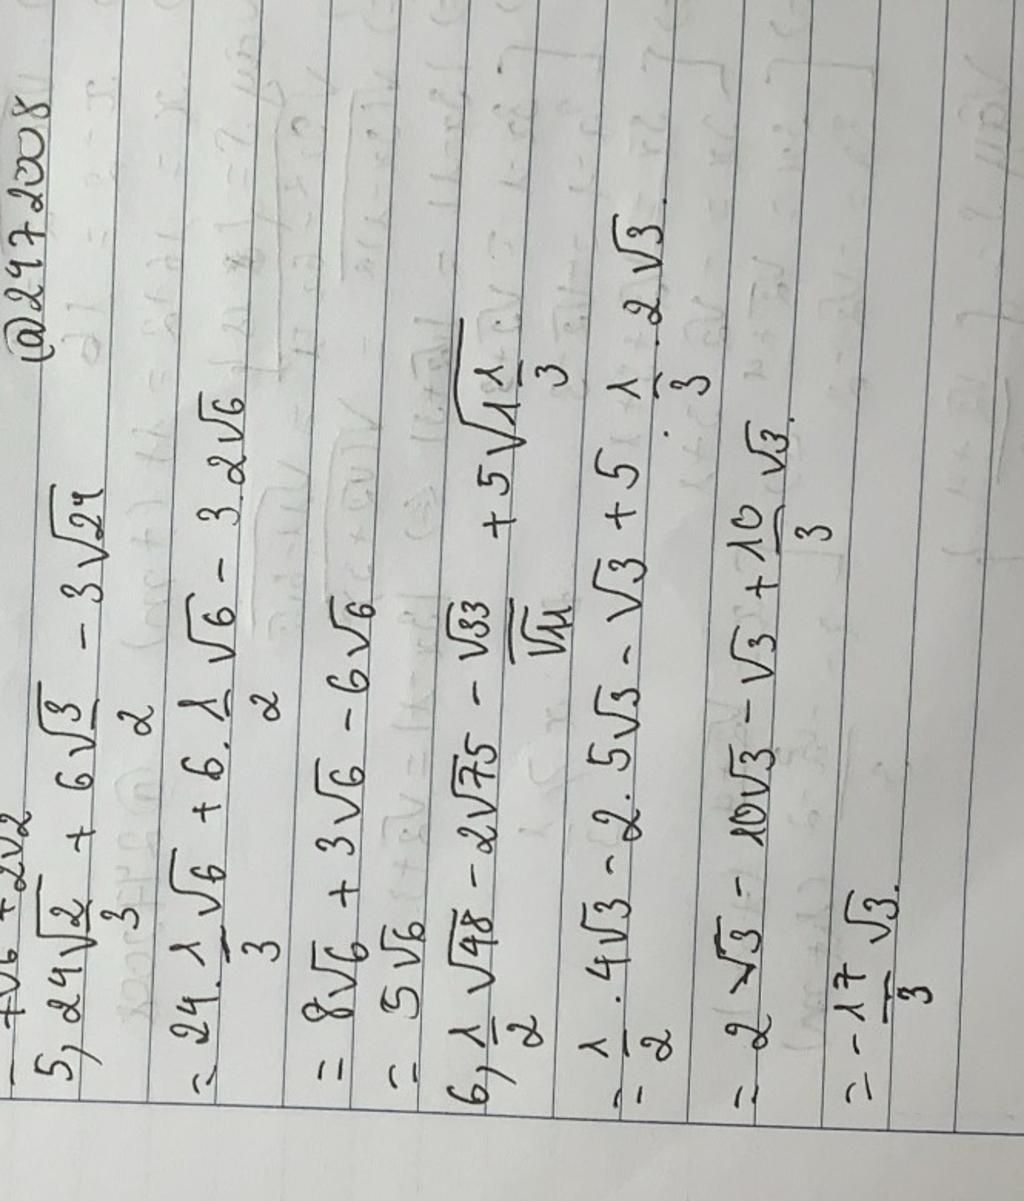 @2472008
5, 24√(2/3) + 6√(3/2) - 3√24
= 24. 1/3 √6 + 6. 1/2 √6 - 3.2√6
= 8√6 + 3√6 - 6√6
= 5√6
6, 1/2 √48 - 2√75 - √33/√11 + 5√(1 1/3)
= 1/2 .4√3 - 2. 5√3 - √3 + 5 . 1/3 .2√3.
= 2√3 - 10√3 - √3 + 10/3 √3.
= -17/3 √3.